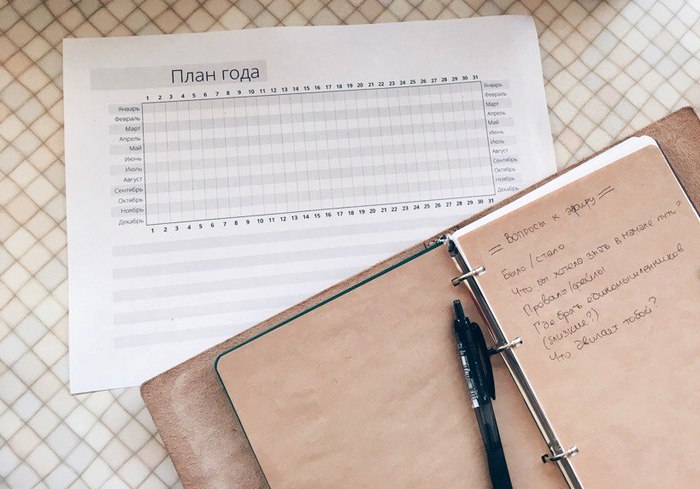 План года
1 2 3 4 5 6 7 8 9 10 11 12 13 14 15 16 17 18 19 20 21 22 23 24 25 26 27 28 29 30 31
Январь Январь
Февраль Февраль
Март Март
Апрель Апрель
Май Май
Июнь Июнь
Июль Июль
Август Август
Сентябрь Сентябрь
Октябрь Октябрь
Ноябрь Ноябрь
Декабрь Декабрь
1 2 3 4 5 6 7 8 9 10 11 12 13 14 15 16 17 18 19 20 21 22 23 24 25 26 27 28 29 30 31
= Вопросы к эфиру =
Было/стало
Что бы хотела знать в начале пути?
Провалы/фейлы
Где брать единомышленников
(близкие?)
Что движет тобой?